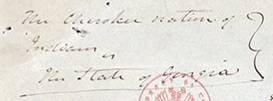 The Cherokee nation of
Indians
vs
The State of Georgia